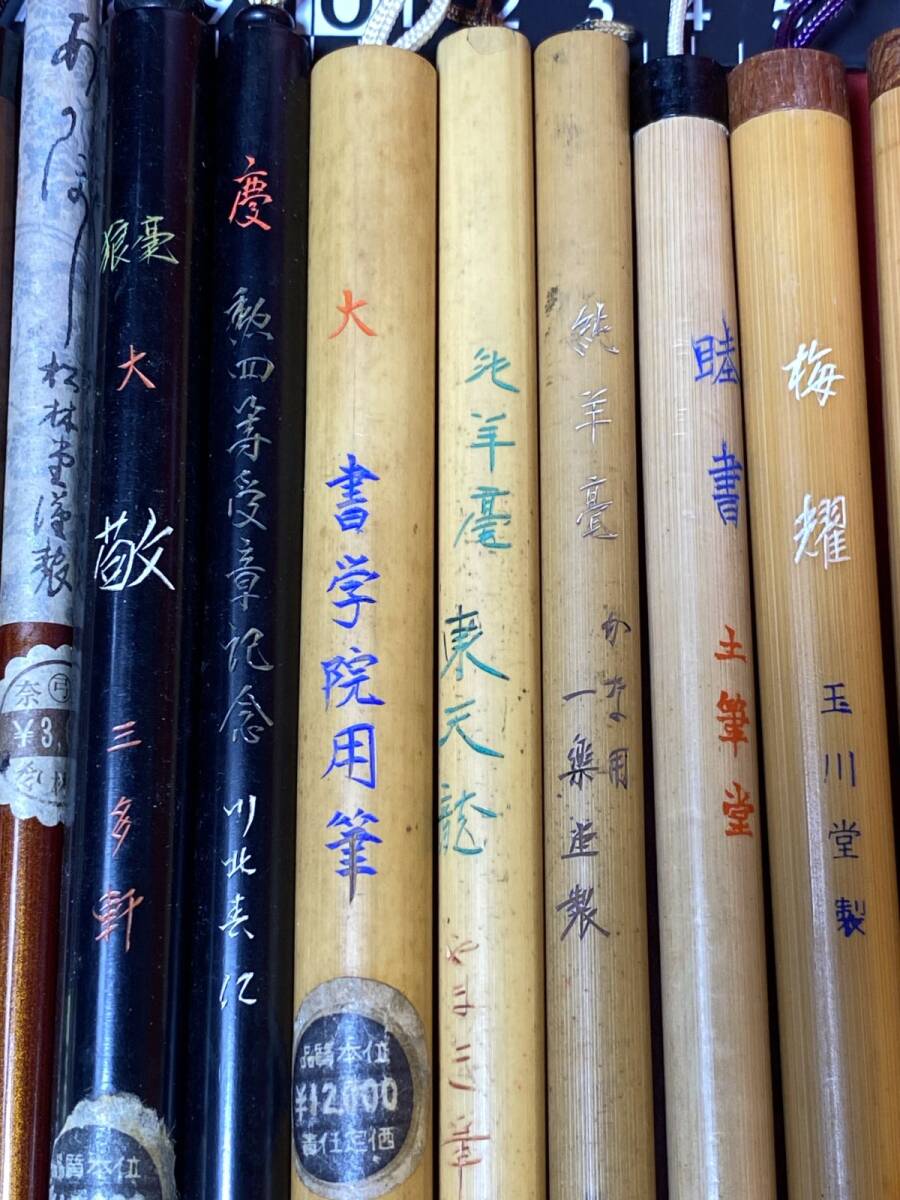 2 3 4 5
松林堂謹製
奈
¥3,
狼毫
大
敬
三多軒
品質本位
慶
勲四等受章記念
川北春江
大
書学院用筆
品質本位
¥12000
責任定価
純羊毫
東天龍
純羊毫
かな用
一楽造製
睦書
土筆堂
梅耀
玉川堂製